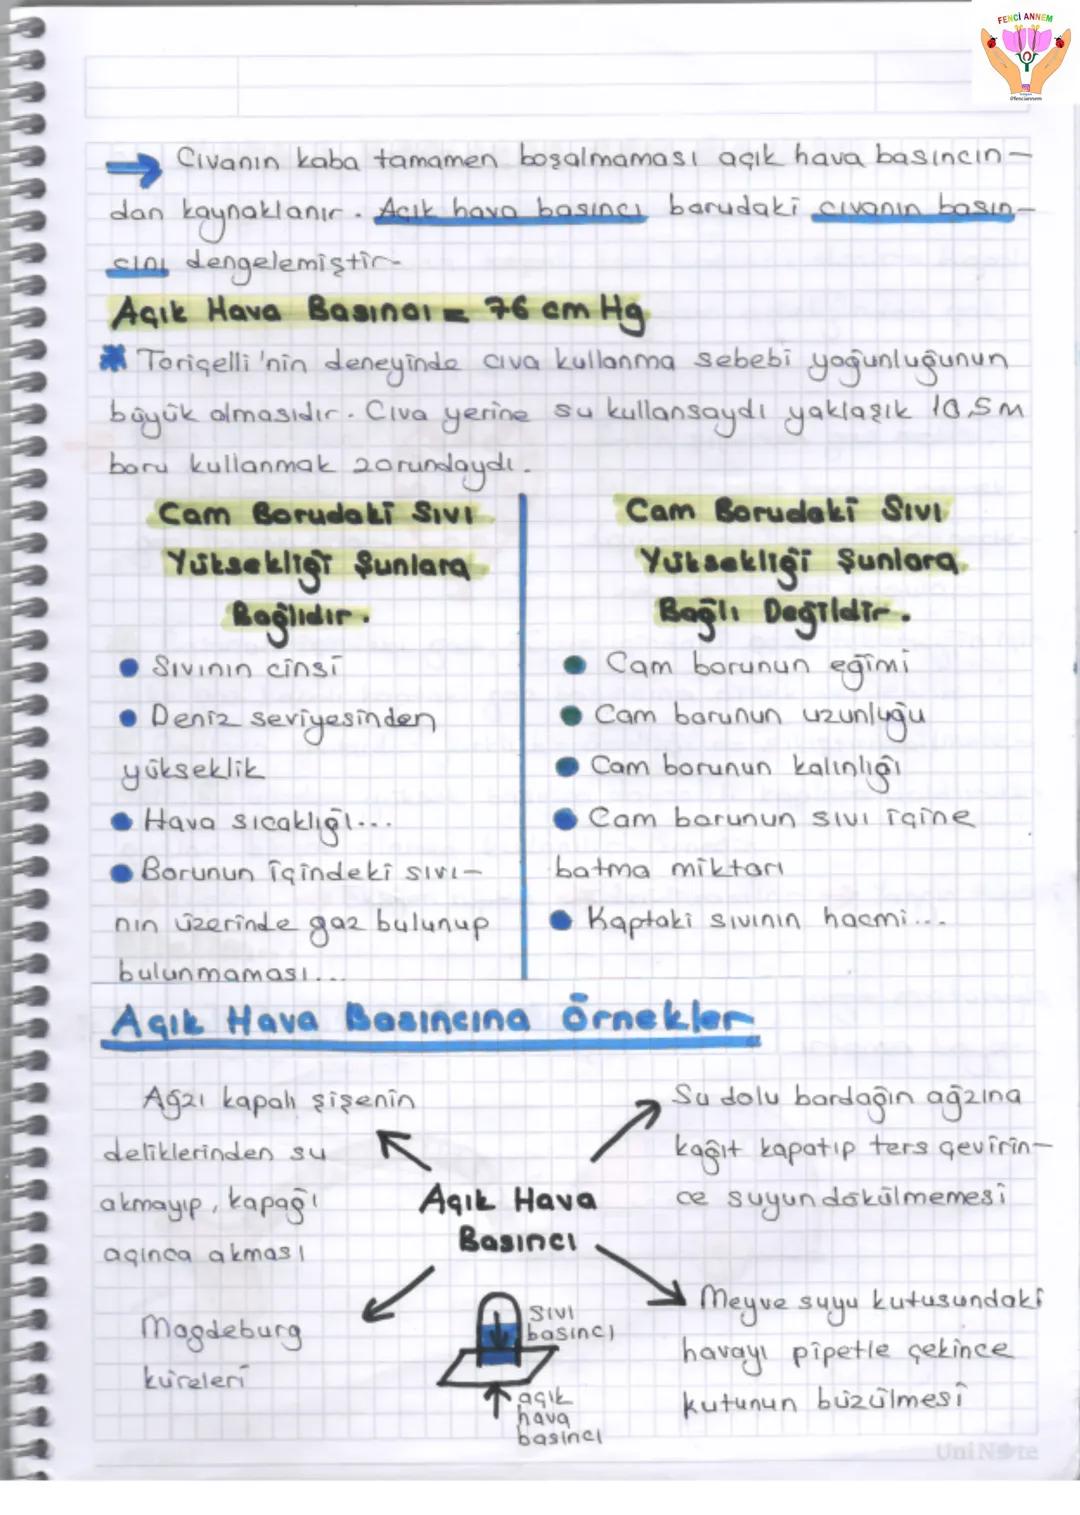 FENCİ ANNEM
@fenciannem
Civanın kaba tamamen boşalmaması açık hava basıncın-
dan kaynaklanır. Açık hava basıncı borudaki civanın basın-
cını dengelemiştir.
Açık Hava Basıncı = 76 cm Hg
* Toriçelli'nin deneyinde civa kullanma sebebi yoğunluğunun
büyük olmasıdır. Civa yerine su kullansaydı yaklaşık 10,5 m
boru kullanmak zorundaydı.
Cam Borudaki Sıvı
Yüksekliği Şunlara
Bağlıdır.
• Sıvının cinsi
• Deniz seviyesinden
yükseklik
• Hava sıcaklığı...
• Borunun içindeki sıvı-
nın üzerinde gaz bulunup
bulunmaması...
Cam Borudaki Sıvı
Yüksekliği Şunlara
Bağlı Değildir.
• Cam borunun eğimi
• Cam borunun uzunluğu
• Cam borunun kalınlığı
• Cam borunun sıvı içine
batma miktarı
• Kaptaki sıvının hacmi...
Açık Hava Basıncına Örnekler
Ağzı kapalı şişenin
deliklerinden su
akmayıp, kapağı
açınca akması
Su dolu bardağın ağzına
kağıt kapatıp ters çevirin-
ce suyun dökülmemesi
Açık Hava
Basıncı
Magdeburg
küreleri
sıvı
basıncı
açık
hava
basıncı
Meyve suyu kutusundaki
havayı pipetle çekince
kutunun büzülmesi
UniNote